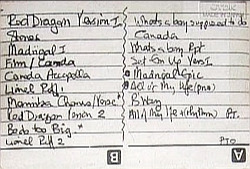 Red Dragon Version 1
Stones
Madrigal I
Film / Canada
Canada Accapella
Lionel Riff 1
Chorus/Verse*
Red Dragon Version 2
Beds too Big *
Lionel Riff 2
B
Whats a boy supposed to do
Canada
Whats a boy Rpt
Set Em Up Vers I
Madrigal Epic
All of my life (pno)
All of My life (rhythm)
PTO
A
PTO